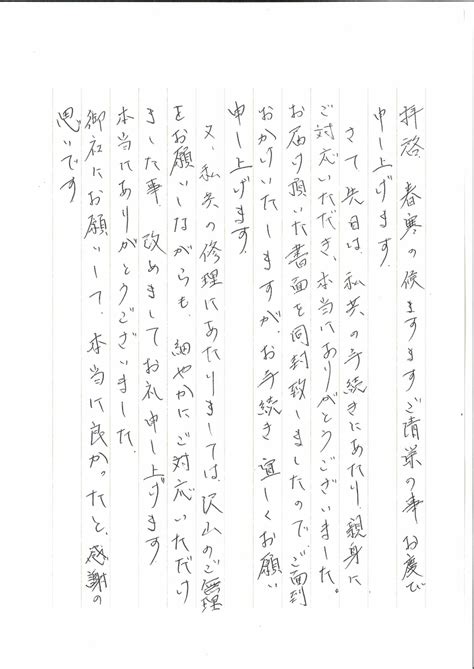 拝啓 春寒の候 ますますご清栄の事 お慶び
申し上げます。
さて先日は、私共の手続きにあたり、親身に
ご対応いただき、本当にありがとうございました。
お届け頂いた書面を同封致しましたので、ご面倒
おかけいたしますが、お手続き宜しくお願い
申し上げます。
又、私共の修理にあたりましては、沢山のご無理
をお願いしながらも、細やかにご対応いただけ
ました事 改めましてお礼申し上げます
本当にありがとうございました。
御社にお願いして、本当に良かったと、感謝の
思いです